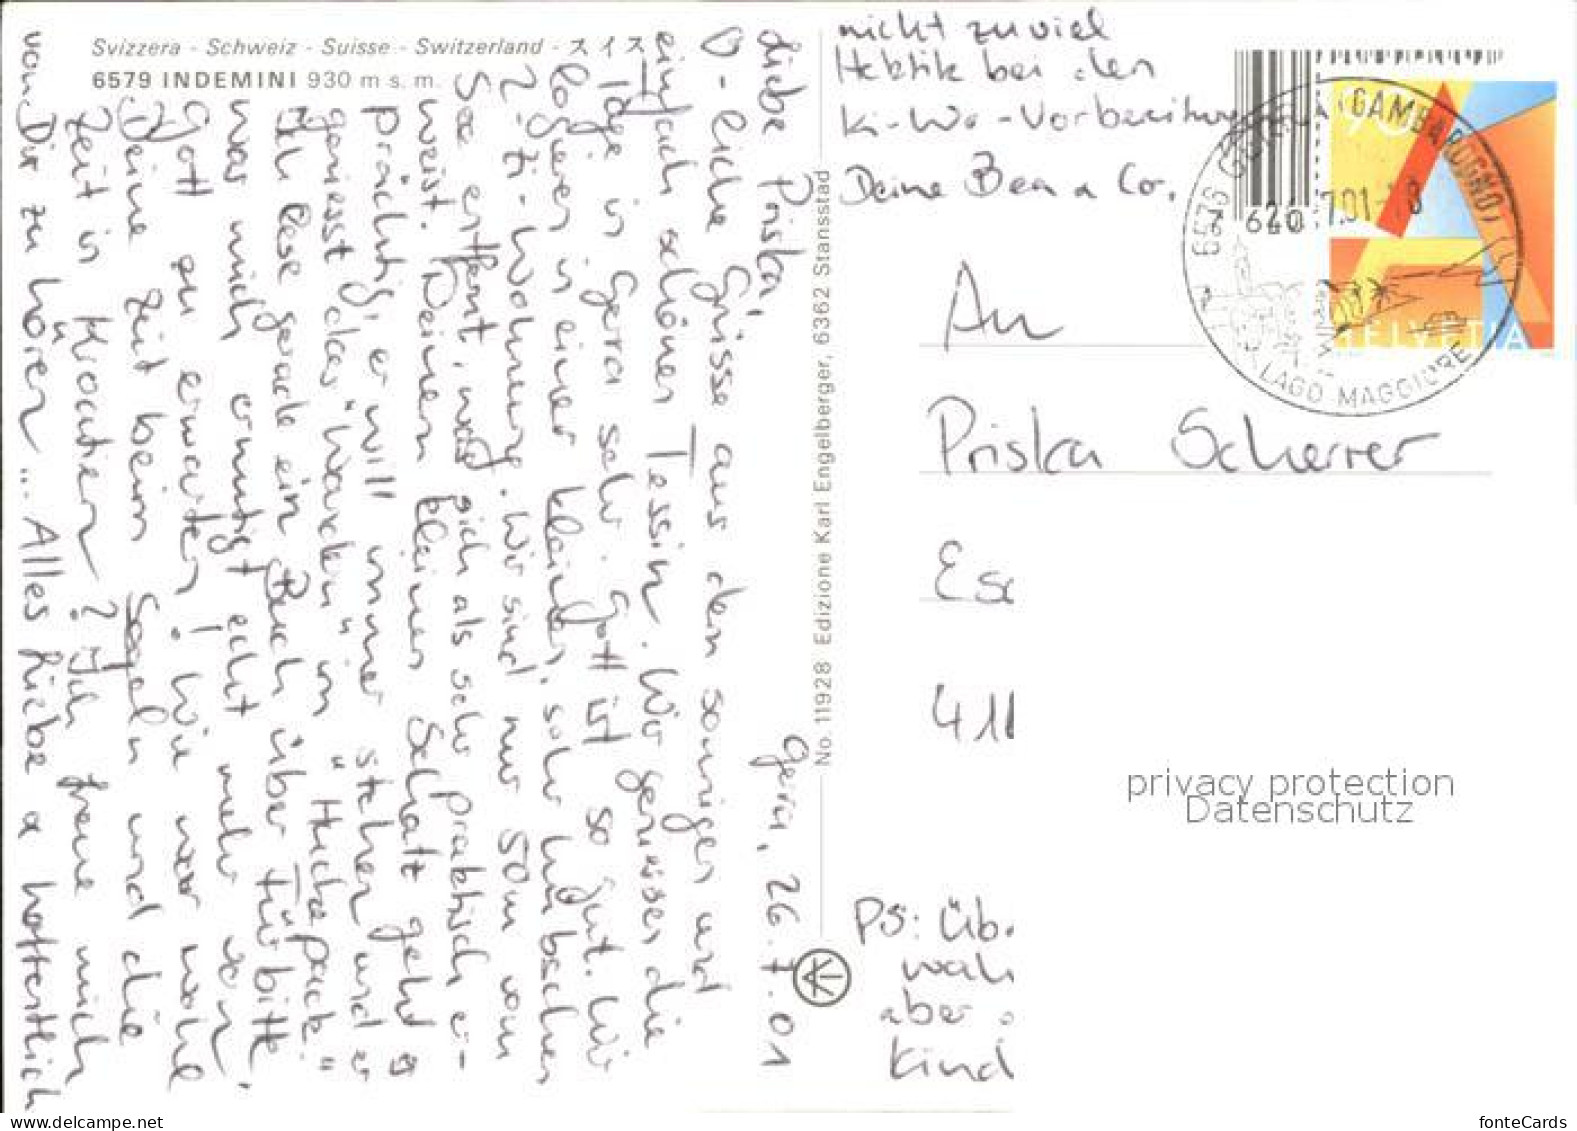 Svizzera - Schweiz - Suisse - Switzerland - スイス
6579 INDEMINI 930 m s. m.
Gerra, 26.7.01
Liebe Priska,
0-liche Grüsse aus dem sonnigen und
einfach schönen Tessin. Wir geniessen die
Tage in Gerra sehr. Gott ist so gut. Wir
logieren in einer kleinen, sehr hübschen
2-Zi-Wohnung. Wir sind nur 50m vom
See entfernt, was sich als sehr praktisch er-
weist. Deinem kleinen Schatz geht es
prächtig, er will immer stehen und er
geniesst das "Wandern" im "Huckepack."
Ich lese gerade ein Buch über Fürbitte,
was mich ermutigt echt mehr von
Gott zu erwarten! Wie war wohl
Deine Zeit beim Segeln und die
Zeit in Kroatien? Ich freue mich
von Dir zu hören... Alles Liebe & hoffentlich
nicht zuviel
Hektik bei den
Ki-Wo-Vorbereitungen
Deine Bea & Co.
No. 11928 Edizione Karl Engelberger, 6362 Stansstad
7 640
90
HELVETIA
6576 GERRA (GAMBAROGNO)
7.01-18
LAGO MAGGIORE
An
Priska Scherrer
Es
411
privacy protection
Datenschutz
PS: Üb.
wah
aber
Kind
www.delcampe.net
fonteCards